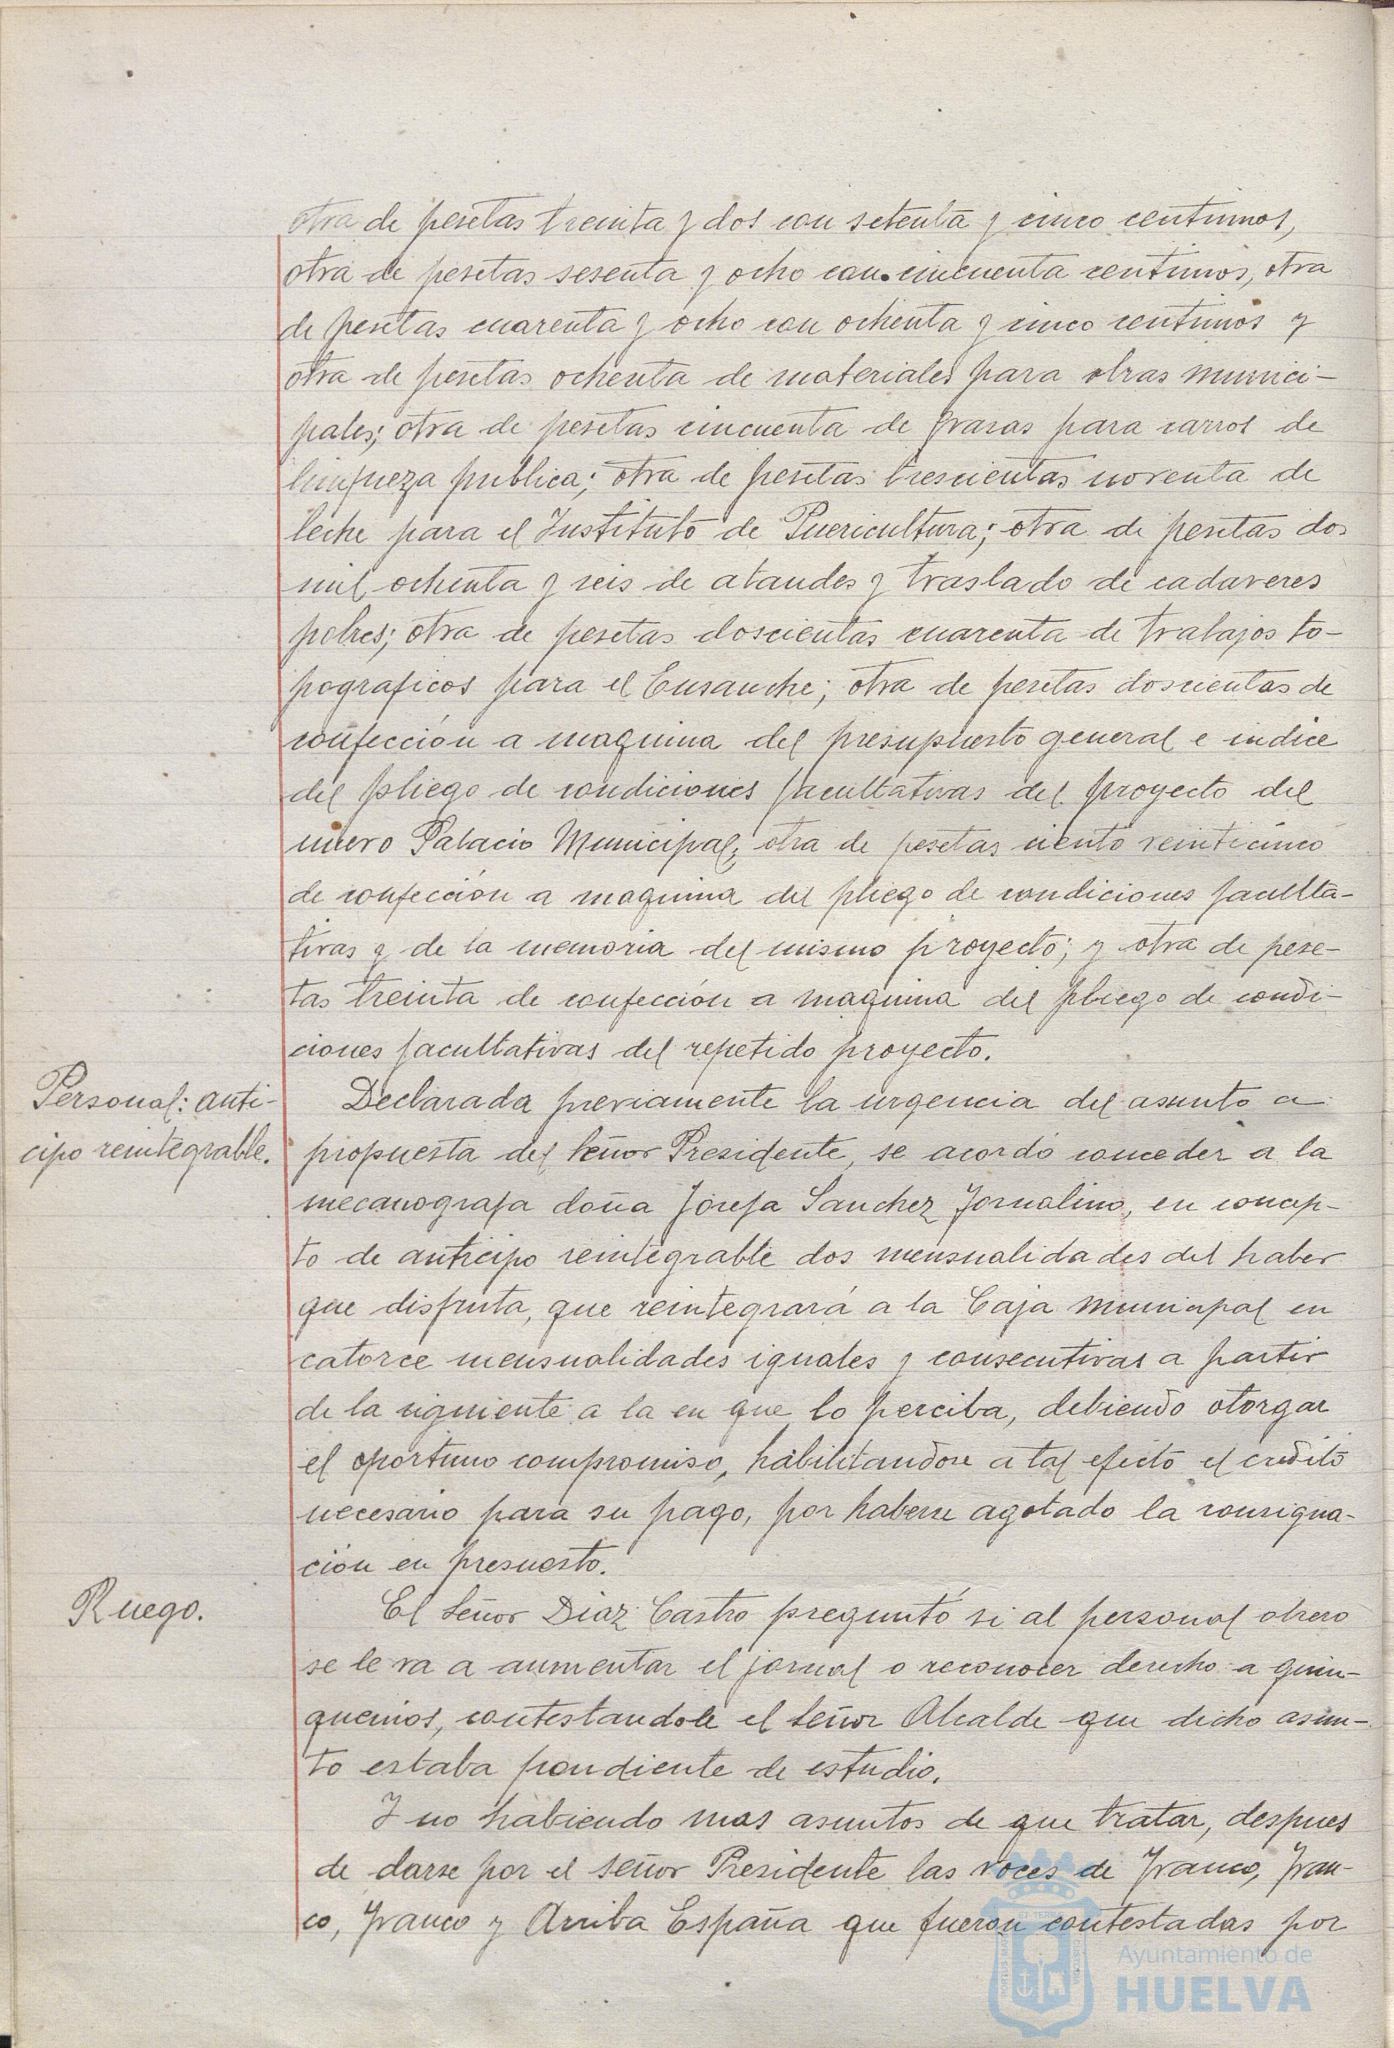 otra de pesetas treinta y dos con setenta y cinco centimos,
otra de pesetas sesenta y ocho con cincuenta centimos, otra
de pesetas cuarenta y ocho con ochenta y cinco centimos y
otra de pesetas ochenta de materiales para obras munici-
pales; otra de pesetas cincuenta de grasas para carros de
limpieza publica; otra de pesetas trescientas noventa de
leche para el Instituto de Puericultura; otra de pesetas dos
mil ochenta y seis de ataudes y traslado de cadaveres
pobres; otra de pesetas doscientas cuarenta de trabajos to-
pograficos para el Ensanche; otra de pesetas doscientas de
confección a maquina del presupuesto general e indice
del pliego de condiciones facultativas del proyecto del
nuevo Palacio Municipal; otra de pesetas ciento veinticinco
de confección a maquina del pliego de condiciones faculta-
tivas y de la memoria del mismo proyecto; y otra de pese-
tas treinta de confección a maquina del pliego de condi-
ciones facultativas del repetido proyecto.
Personal: anti-
cipo reintegrable.
Declarada previamente la urgencia del asunto a
propuesta del señor Presidente, se acordó conceder a la
mecanografa doña Josefa Sanchez Jornalino, en concep-
to de anticipo reintegrable dos mensualidades del haber
que disfruta, que reintegrará a la Caja municipal en
catorce mensualidades iguales y consecutivas a partir
de la siguiente a la en que lo perciba, debiendo otorgar
el oportuno compromiso, habilitandose a tal efecto el credito
necesario para su pago, por haberse agotado la consigna-
ción en presuesto.
Ruego.
El señor Diaz Castro preguntó si al personal obrero
se le va a aumentar el jornal o reconocer derecho a quin-
quenios, contestandole el señor Alcalde que dicho asun-
to estaba pendiente de estudio.
Y no habiendo mas asuntos de que tratar, despues
de darse por el señor Presidente las voces de Franco, Fran-
co, Franco y Arriba España que fueron contestadas por
Ayuntamiento de
HUELVA